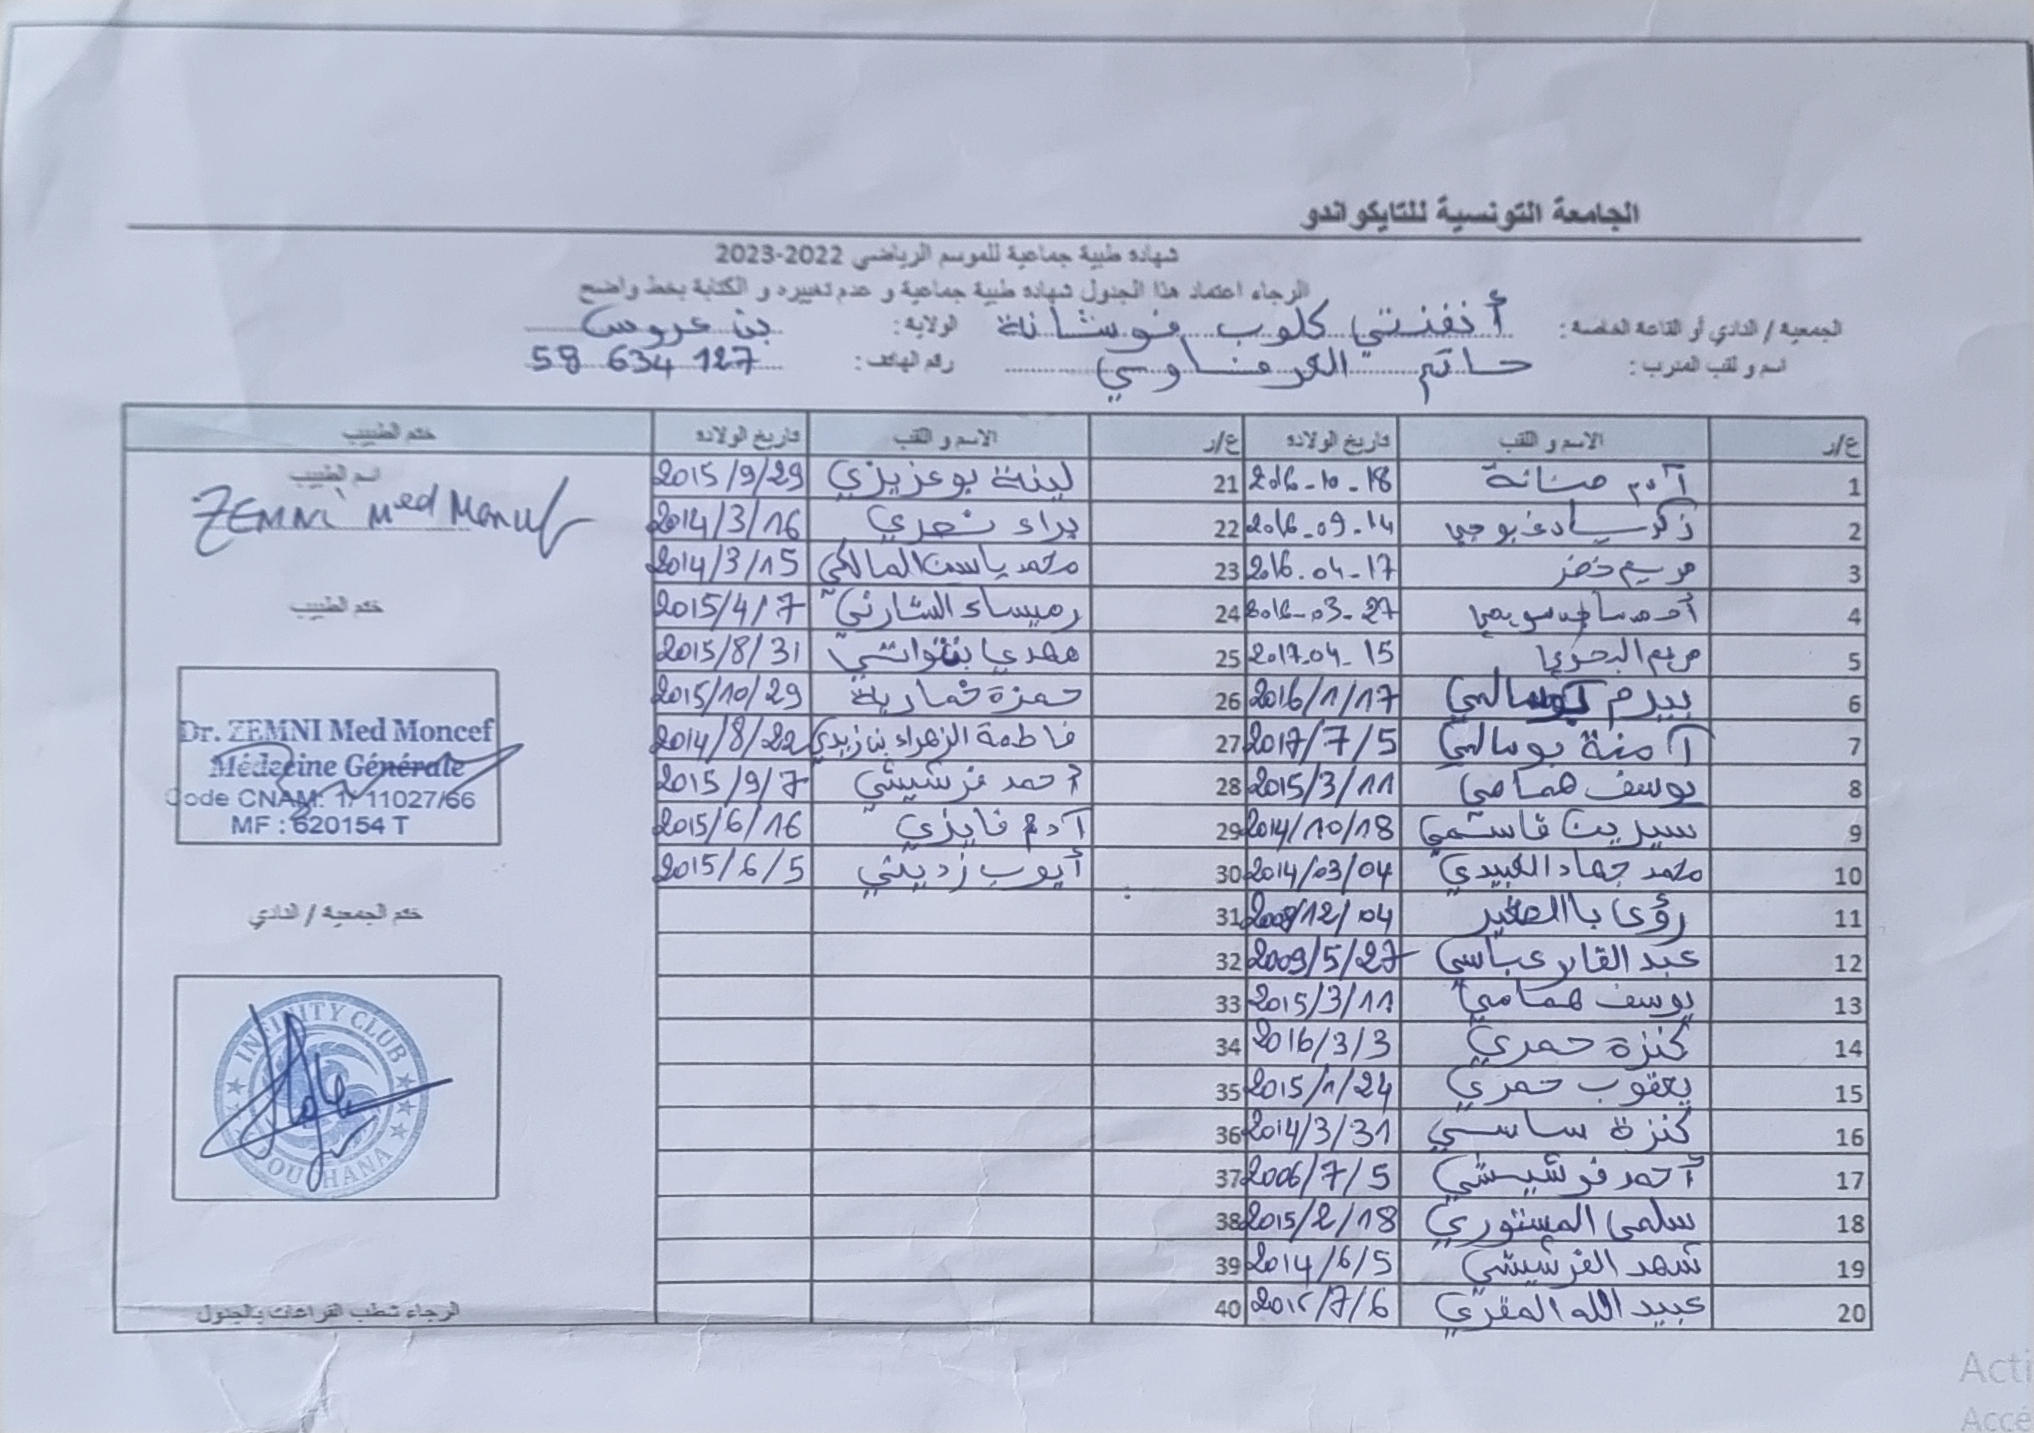 الجامعة التونسية للتايكواندو
شهادة طبية جماعية للموسم الرياضي 2022-2023
الرجاء اعتماد هذا الجدول شهادة طبية جماعية و عدم تغييره و الكتابة بخط واضح
الجمعية / النادي أو القاعة الخاصة: أنفنتي كلوب فوشانة الولاية: بن عروس
اسم و لقب المدرب: حاتم رقم الهاتف: 58 634 127
ع/ر الاسم و اللقب تاريخ الولادة ع/ر الاسم و اللقب تاريخ الولادة ختم الطبيب
1 آدم 2016-10-18 21 لينة بوعزيزي 2015/9/29
2 2016-09-14 22 براء 2014/3/16
3 مريم خضر 2016-04-17 23 محمد ياسين المالكي 2014/3/15
4 أحمد 2016-03-27 24 رميساء الشارني 2015/4/7
5 مريم البحري 2017-04-15 25 مهدي 2015/8/31
6 بيرم بوسالمي 2016/1/17 26 حمزة خمارية 2015/10/29
7 آمنة بوسالمي 2017/7/5 27 فاطمة الزهراء بن زيدي 2014/8/22
8 يوسف همامي 2015/3/11 28 أحمد فرشيشي 2015/9/7
9 سيرين قاسمي 2014/10/18 29 آدم فايزي 2015/6/16
10 محمد جهاد العبيدي 2014/03/04 30 أيوب زديني 2015/6/5
11 رؤى باالصغير 2008/12/04 31
12 عبد القادر عباسي 2009/5/27 32
13 يوسف همامي 2015/3/11 33
14 كنزة حمدي 2016/3/3 34
15 يعقوب حمزي 2015/1/24 35
16 كنزة ساسي 2014/3/31 36
17 أحمد فرشيشي 2006/7/5 37
18 سلمى المستوري 2015/2/18 38
19 شهد الفرشيشي 2014/6/5 39
20 عبيد الله المقري 2015/7/6 40
اسم الطبيب
ZEMNI Med Moncef
ختم الطبيب
Dr. ZEMNI Med Moncef
Médecine Générale
Code CNAM: 1/ 11027/66
MF : 620154 T
ختم الجمعية / النادي
INFINITY CLUB
FOUCHANA
الرجاء شطب الفراغات بالجدول
Acti
Accé